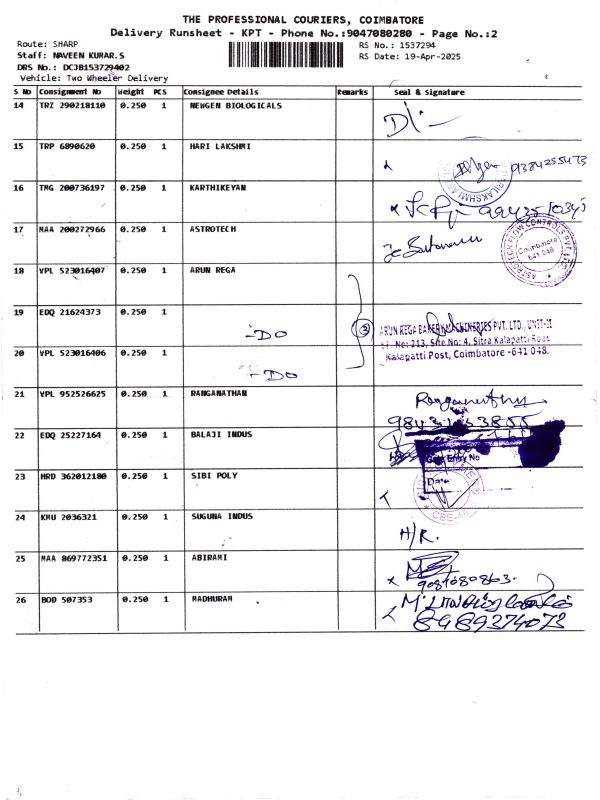 THE PROFESSIONAL COURIERS, COIMBATORE
Delivery Runsheet - KPT - Phone No.:9047080280 - Page No.:2
Route: SHARP
RS No.: 1537294
Staff: NAVEEN KUMAR.S
RS Date: 19-Apr-2025
DRS No.: DCJB153729402
Vehicle: Two Wheeler Delivery
S No Consignment No Weight PCS Consignee Details Remarks Seal & Signature
14 TRZ 290218110 0.250 1 NEWGEN BIOLOGICALS
15 TRP 6890620 0.250 1 HARI LAKSHMI
9384255473
16 TMG 200736197 0.250 1 KARTHIKEYAN
17 MAA 200272966 0.250 1 ASTROTECH
ASTROTECH FLOW CONTROLS PVT. LTD.
Coimbatore
641 048
18 VPL 523016407 0.250 1 ARUN REGA
19 EDQ 21624373 0.250 1
-DO
3
ARUN REGA BAKERY MACHINERIES PVT. LTD., UNIT-II
SF. No: 213, Site No: 4, Sitra Kalapatti Road
Kalapatti Post, Coimbatore - 641 048.
20 VPL 523016406 0.250 1
-DO
21 VPL 952526625 0.250 1 RANGANATHAN
Ranganathan
22 EDQ 25227164 0.250 1 BALAJI INDUS
Entry No
Date
23 HRD 362012180 0.250 1 SIBI POLY
24 KMU 2036321 0.250 1 SUGUNA INDUS
H/R.
25 MAA 869772351 0.250 1 ABIRAMI
9081080863.
26 BOD 507353 0.250 1 MADHURAM
8489374073